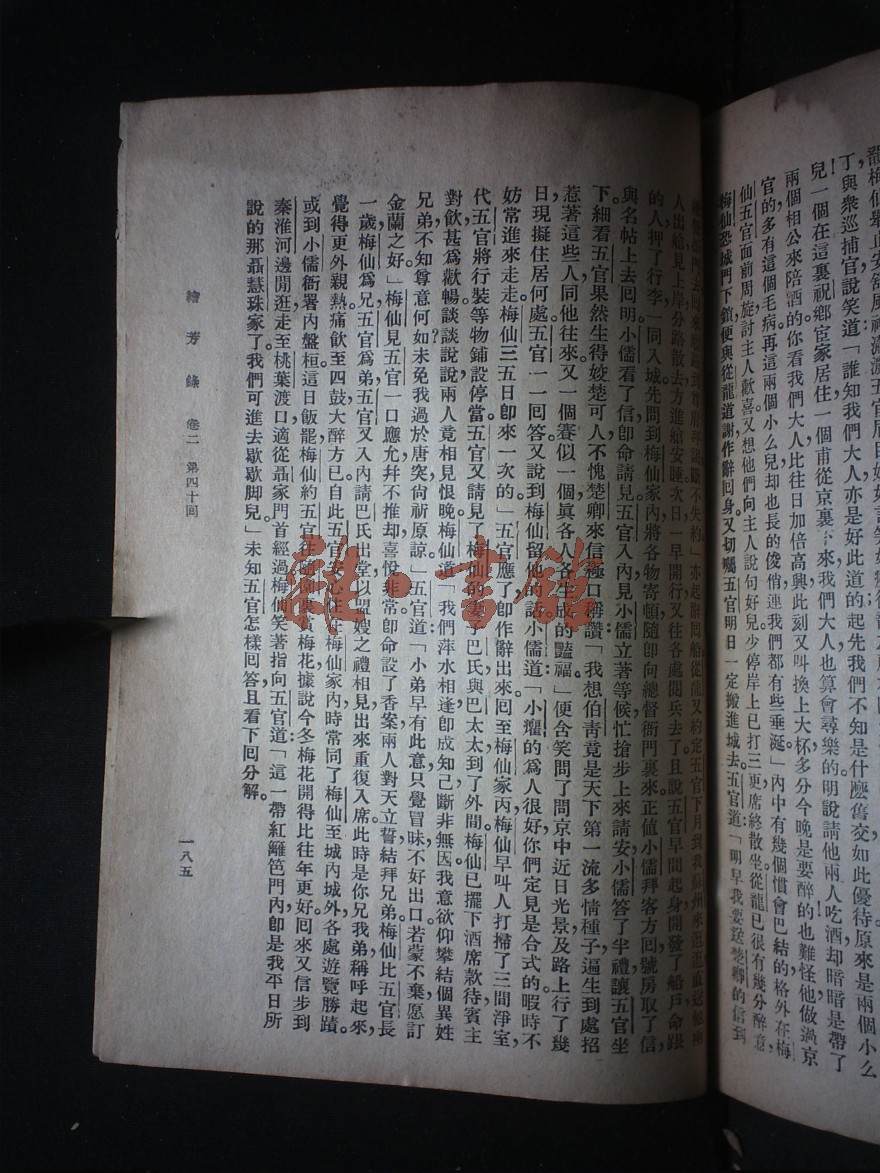 龍梅仙舉止安
丁與衆巡捕官說笑道「誰知我們大人亦是好此道的起先我們不知是什麽舊交如此優待原來是兩個小么
兒一個在這裏祝鄉宦家居住一個甫從京裏下來我們大人也算會尋樂的明說請他兩人吃酒却暗暗是帶了
兩個相公來陪酒的你看我們大人比往日加倍高興此刻又叫換上大杯多分今晚是要醉的也難怪他做過京
官的多有這個毛病再這兩個小么兒却也長的俊俏連我們都有些垂涎」內中有幾個慣會巴結的格外在梅
仙五官面前周旋討主人歡喜又想他們向主人說句好兒少停岸上已打三更席終散坐從龍已很有幾分醉意
梅仙恐城門下鎖便與從龍道謝作辭回身又切囑五官明日一定搬進城去五官道「明早我要送楚卿的信到
不失約」亦起辭回船從龍又約定五官下月到我蘇州來逛逛
人出艙見上岸分路散去方進艙安睡次日一早開行又往各處閱兵去了且說五官早間起身開發了船戶命跟
的人押了行李一同入城先問到梅仙家內將各物寄頓隨卽向總督衙門裏來正値小儒拜客方回號房取了信
與名帖上去回明小儒看了信卽命請見五官入內見小儒立著等候忙搶步上來請安小儒答了半禮讓五官坐
下細看五官果然生得姣楚可人不愧楚卿來信極口稱讚「我想伯青竟是天下第一流多情種子逼生到處招
惹著這些人同他往來又一個賽似一個眞各人各生成的豔福」便含笑問了問京中近日光景及路上行了幾
日現擬住居何處五官一一回答又說到梅仙留他的話小儒道「小癯的爲人很好你們定見是合式的暇時不
妨常進來走走梅仙三五日卽來一次的」五官應了卽作辭出來回至梅仙家內梅仙早叫人打掃了三間淨室
代五官將行裝等物鋪設停當五官又請見了梅仙的妻子巴氏與巴太太到了外間梅仙已擺下酒席款待賓主
對飲甚爲歡暢談談說說兩人竟相見恨晚梅仙道「我們萍水相逢卽成知己斷非無因我意欲仰攀結個異姓
兄弟不知尊意何如未免我過於唐突尙祈原諒」五官道「小弟早有此意只覺冒昧不好出口若蒙不棄愿訂
金蘭之好」梅仙見五官一口應允幷不推却喜悅非常卽命設了香案兩人對天立誓結拜兄弟梅仙比五官長
一歲梅仙爲兄五官爲弟五官又入內請巴氏出堂以盟嫂之禮相見出來重復入席此時是你兄我弟稱呼起來
覺得更外親熱痛飲至四鼓大醉方已自此五官安心住在梅仙家內時常同了梅仙至城內城外各處遊覽勝蹟
或到小儒衙署內盤桓這日飯罷梅仙約五官往隨園裏看梅花據說今冬梅花開得比往年更好回來又信步到
秦淮河邊閒逛走至桃葉渡口適從聶家門首經過梅仙笑著指向五官道「這一帶紅籬笆門內卽是我平日所
說的那聶慧珠家了我們可進去歇歇脚兒」未知五官怎樣回答且看下回分解
繪芳錄 卷二 第四十回
一八五
雜·書館